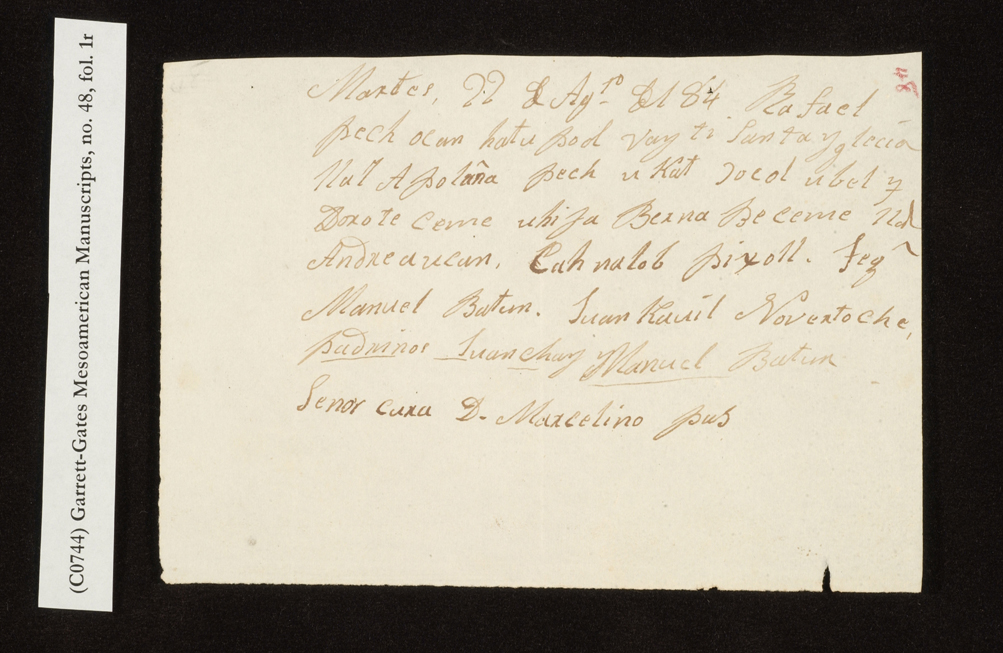 (C0744) Garrett-Gates Mesoamerican Manuscripts, no. 48, fol. 1r
48
Martes, 22 d Agto d 184 Rafael
pech ocan hatu pod vay ti Santa yglecia
Apolaña pech u Kat Ɔocol ubel y
Dorote ceme uhija Berna Be ceme
Andrea ucan. Cah nalob pixoll. Teqo
Manuel Batun. Juan Kauil Novertoche,
padrinos Juan chay y Manuel Batun
Senor cura D. Marcelino pus